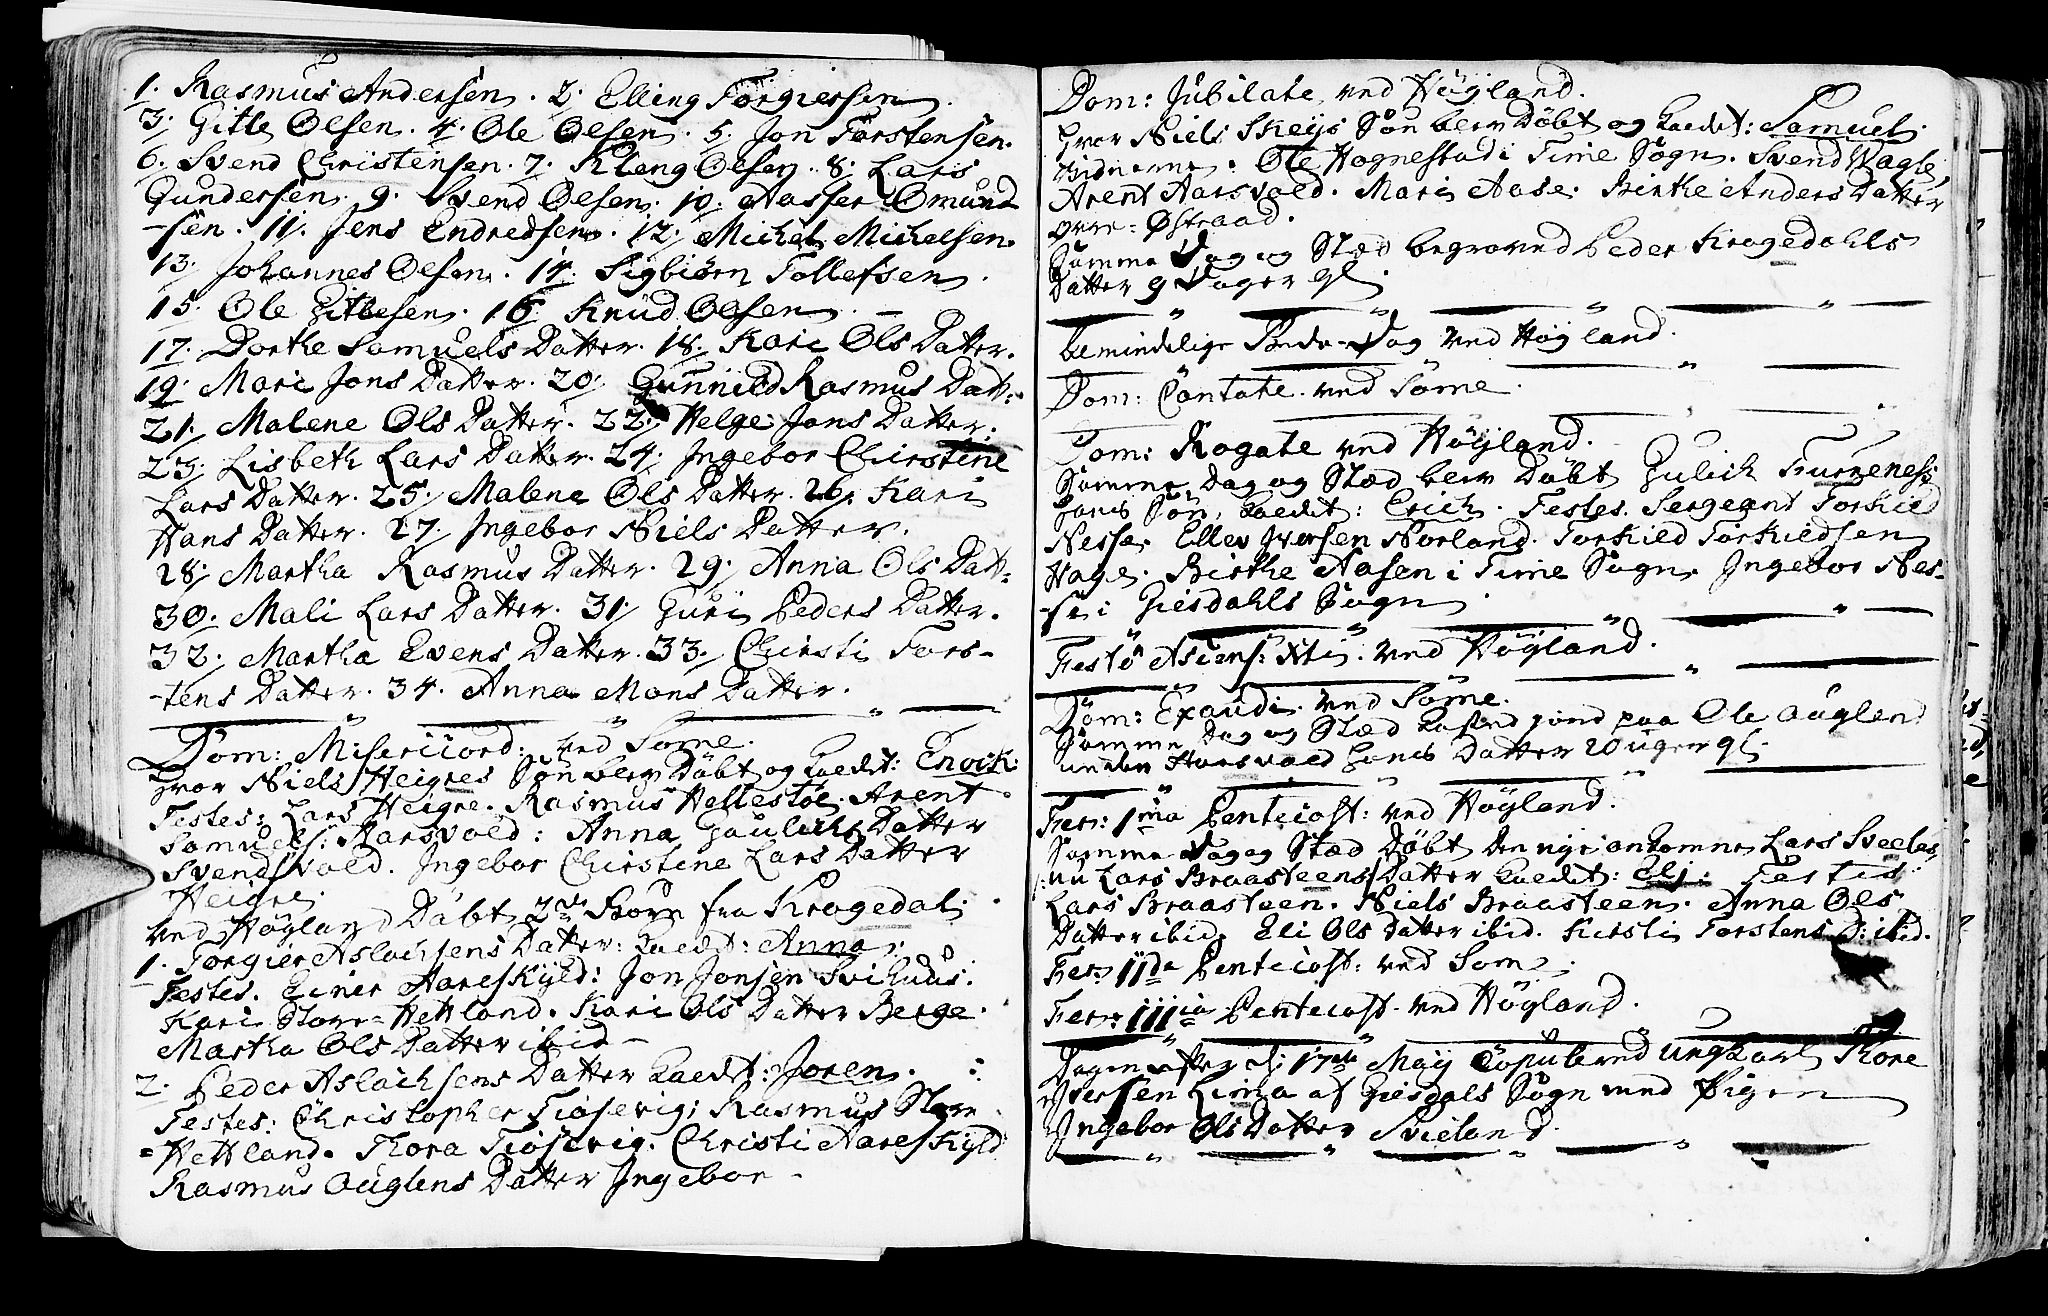 1. Rasmus Andersen. 2. Elling Torgiersen.
3. Gitle Olsen. 4. Ole Olsen. 5. Jon Torstensen.
6. Svend Christensen. 7. Kleng Olsen. 8. Lars
Gundersen. 9. Svend Olsen. 10. Aasser Omund
-sen. 11. Jens Endredsen. 12. Michel Michelsen.
13. Johannes Olsen. 14. Sigbiörn Tollefsen.
15. Ole Gitlesen. 16. Knud Olsen. -
17. Dorthe Samuels Datter. 18. Kari Ols Datter.
19. Mari Jons Datter. 20. Gunnild Rasmus Datt:
21. Malene Ols Datter. 22. Helge Jons Datter.
23. Lisbeth Lars Datter. 24. Ingebor Chirstine
Lars Datter. 25. Malene Ols Datter. 26. Kari
Hans Datter. 27. Ingebor Niels Datter.
28. Martha Rasmus Datter. 29. Anna Ols Datt-
30. Mali Lars Datter. 31. Guri Peders Datter.
32. Martha Evens Datter. 33. Chirsti Tors-
-tens Datter. 34. Anna Mons Datter.
Dom: Misericord: ved Some.
hvor Niels Heigres Søn blev Døbt og kaldt: Enoch:
Testes: Lars Heigre. Rasmus Hellestöe. Arent
Samuels: Aarsvold: Anna Gaulichs Datter
Svendsvold. Ingebor Chirstine Lars Datter
Heigre
ved Høyland Døbt 2de Børn fra Kragedal.
1. Torgier Aslachsens Datter: kaldt: Anna.
Testes. Einer Aareskyld: Jon Jonsen Svihuus.
Kari Store-Hetland. Kari Ols Datter Berge.
Martha Ols Datter ibid -
2. Peder Aslachsens Datter kaldt: Joren. :
Testes: Christopher Tiøsevig; Rasmus Store
=Hetland. Thora Tiösevig. Christi Aareskyld
Rasmus Auglens Datter Ingebor -
Dom: Jubilate, ved Høyland.
hvor Niels Skeys Søn blev Døbt og kaldt: Samuel.
Vidnerne. Ole Hognestad i Time Sogn. Svend Vagle,
Arent Aarsvold. Mari Aase. Birthe Anders Datter
Øvre-Østraad.
Samme Dag og Stæd begraved Peder Kragedahls
Datter 9 Dager gl.
Almindelige Bede-Dag ved Høyland.
Dom: Cantate ved Some.
Dom: Rogate ved Høyland.
Samme Dag og Stæd blev Døbt Gulich Furrenes
hans Søn, kaldt: Erich. Testes. Sergeant Torkild
Nesse. Ellev Iversen Norland. Torkild Torkildsen
Hage. Birthe Aasen i Time Sogn. Ingebor Nes-
-se i Giesdahls Sogn.
Festo Ascens: Xti. ved Høyland.
Dom: Exaudi ved Some.
Samme Dag og Stæd kasted jord paa Ole Auglend
Aarsvold hans Datter 20 uger gl.
Fer: 1ma Penticost: ved Høyland.
Samme Dag og Stæd Døbt Den nye ankomne Lars
nu Lars Braasteens Datter kaldt: Eli: Testes
Lars Braasteen. Niels Braasteen. Anna Ols
Datter ibid. Eli Ols Datter ibid. Kirsti Torstens D: ibid.
Fer: IIda Penticost: ved Some.
Fer: IIItia Penticost. ved Høyland.
Dagen efter d: 17de May Copulered ungkarl Thore
Iversen Lima af Giesdals Sogn med Pigen
Ingebor Ols Datter Svieland.